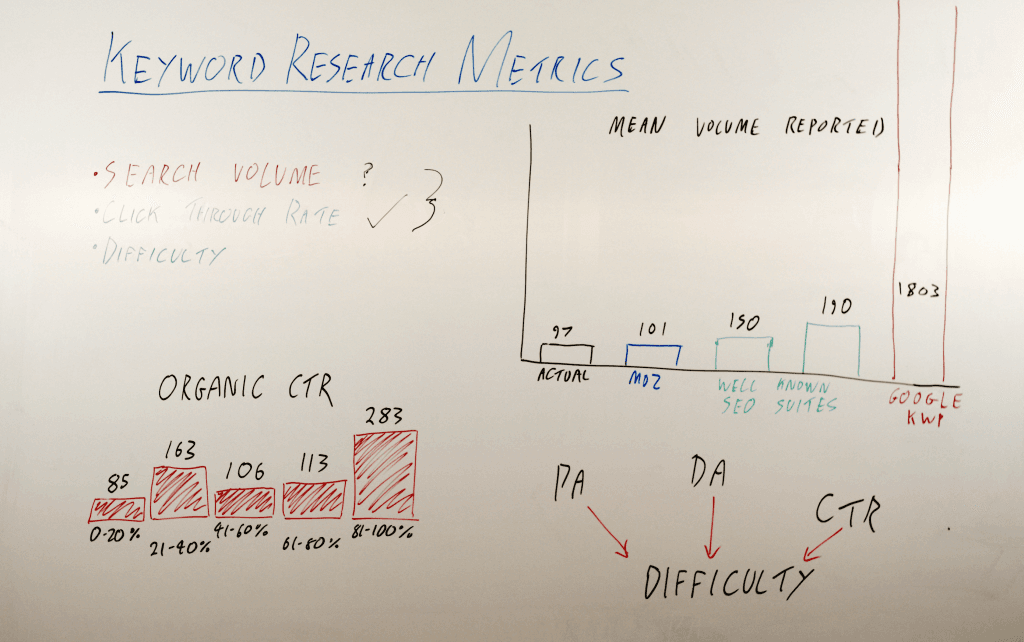 KEYWORD RESEARCH METRICS
• SEARCH VOLUME ?
• CLICK THROUGH RATE ✓
• DIFFICULTY
MEAN VOLUME REPORTED
97
101
150
190
1803
ACTUAL
MOZ
WELL KNOWN
SEO SUITES
GOOGLE
KWP
ORGANIC CTR
85
163
106
113
283
0-20%
21-40%
41-60%
61-80%
81-100%
PA
DA
CTR
DIFFICULTY